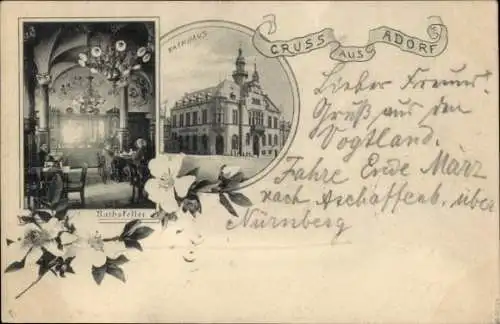 GRUSS AUS ADORF i/S
RATHHAUS
Rathskeller
Lieber Freund!
Gruß aus dem
Vogtland.
Fahre Ende März
nach Aschaffenb. über
Nürnberg